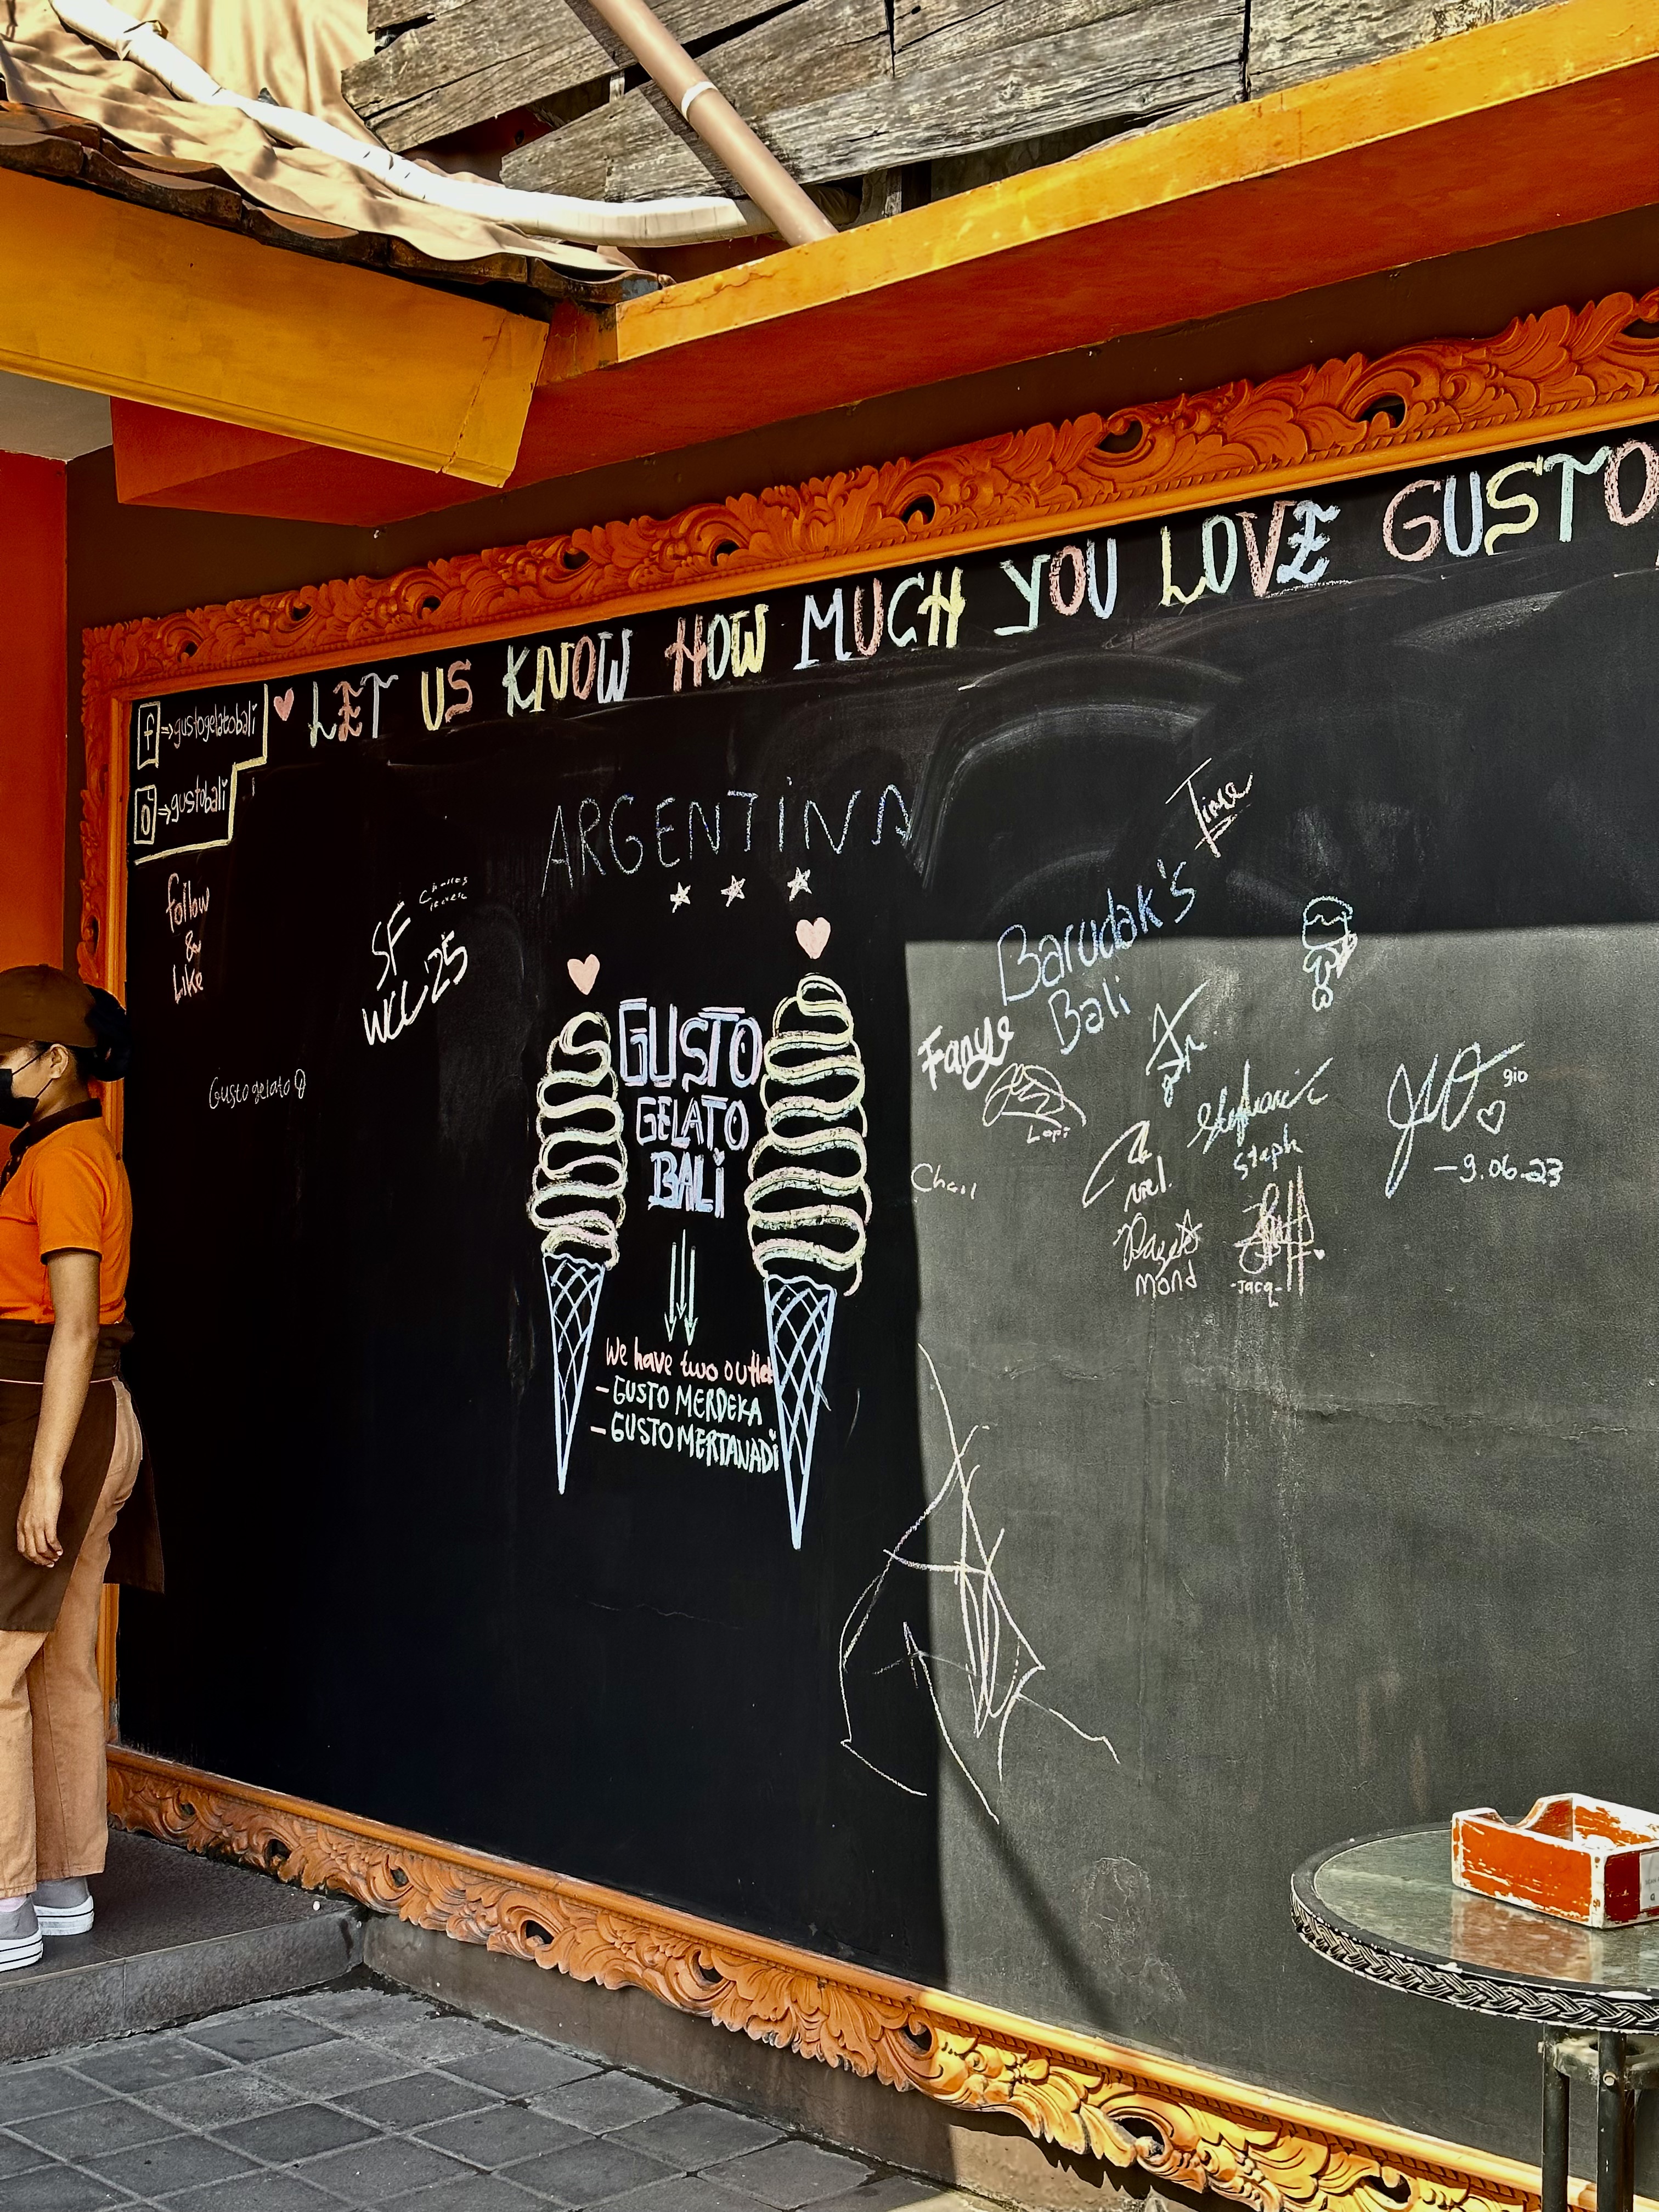 LET US KNOW HOW MUCH YOU LOVE GUSTO
f ⇒ gustogelatobali
⇒ gustobali
follow
&
Like
ARGENTINA
SF
WCC'25
Gusto gelato
GUSTO
GELATO
BALi
We have two outlet
- GUSTO MERDEKA
- GUSTO MERTANADi
Time
Barudak's
Bali
Fanye
Lopi
Steph
gio
-9.06-23
mond
-Jacq-